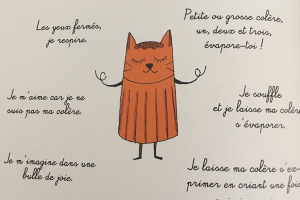 Les yeux fermés,
je respire.
Petite ou grosse colère,
un, deux et trois,
évapore-toi !
Je m'aime car je ne
suis pas ma colère.
Je souffle
et je laisse ma colère
s'évaporer.
Je m'imagine dans une
bulle de joie.
Je laisse ma colère s'ex-
primer en criant une fois